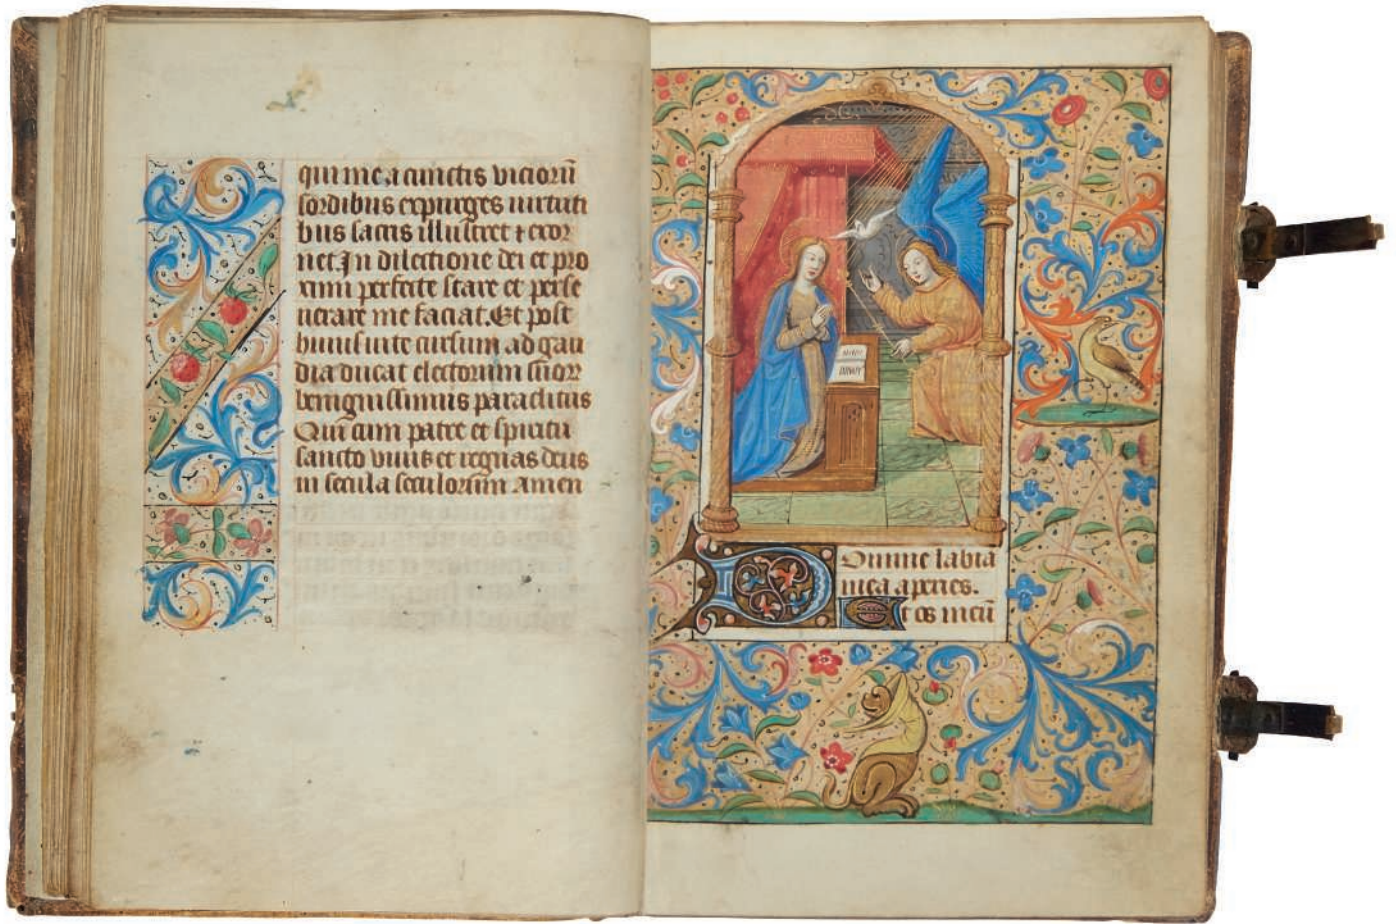 qui me a cunctis vicioru̅
sordibus expurges uirtuti
bus sacis illustret ⁊ exor
net. In dilectione dei et pro
ximi perfecte stare et perse
uerare me faciat. Et post
huius uite cursum ad gau
dia ducat electorum suor̅
benignissimus paraclitus
Qui cum patre et spiritu
sancto viuis et regnas deus
in secula seculorum Amen
Domine labia
mea aperies.
Et os meu̅